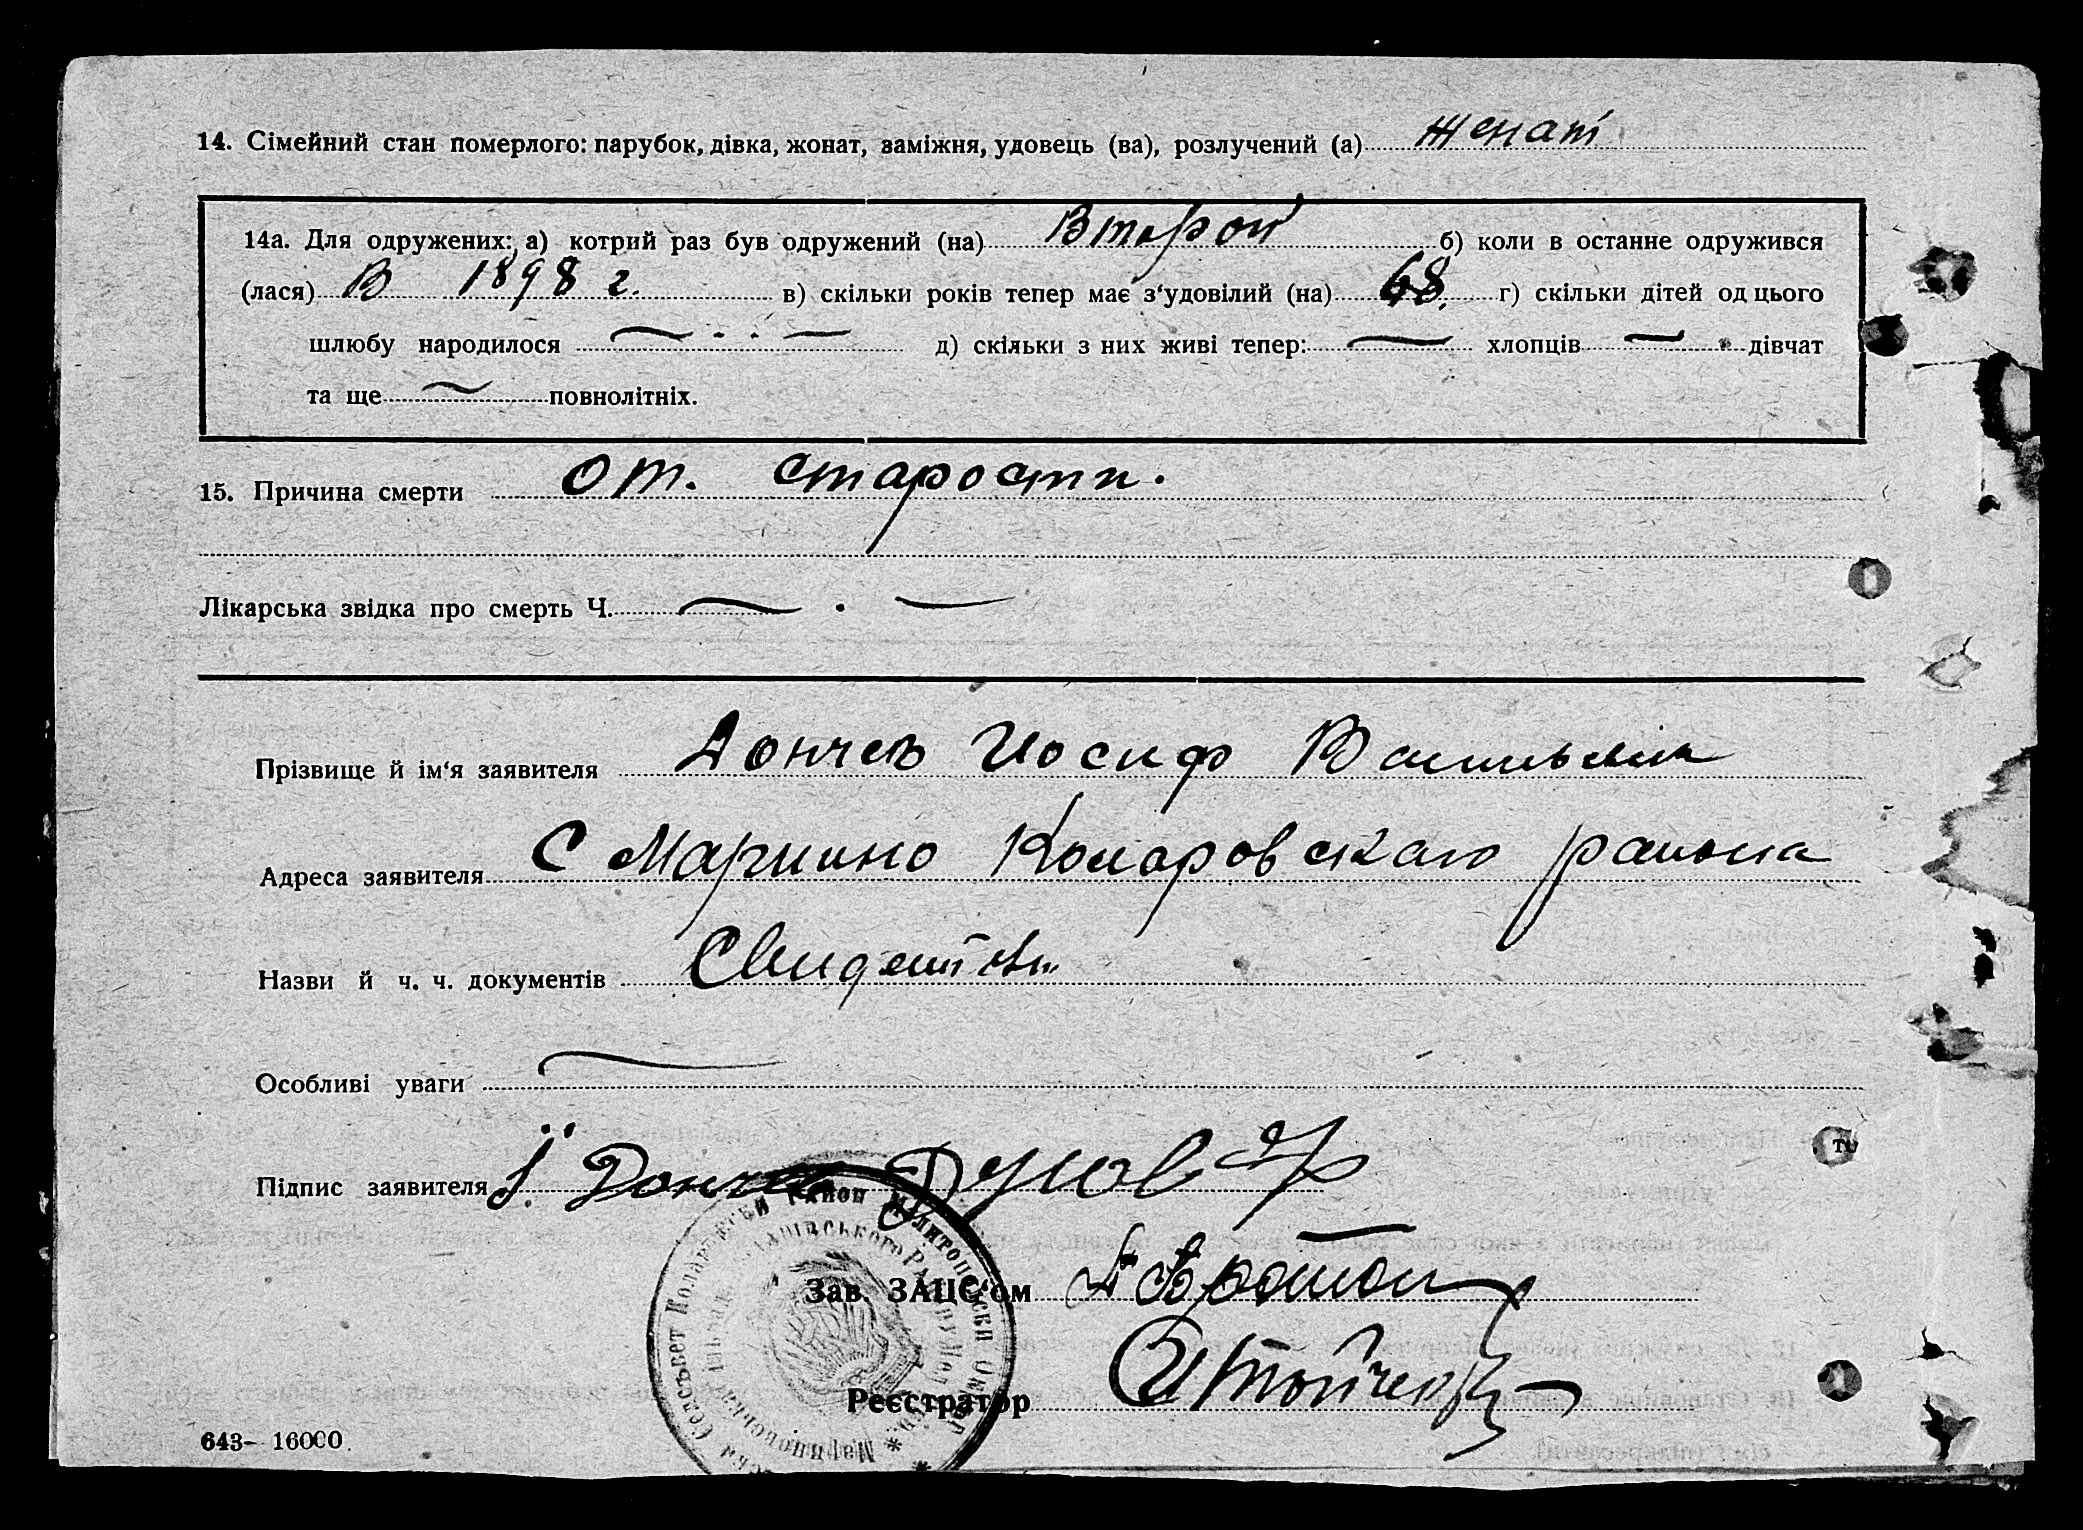 14. Сімейний стан померлого: парубок, дівка, жонат, заміжня, удовець (ва), розлучений (а) женат
14а. Для одружених: а) котрий раз був одружений (на) Второй б) коли в останне одружився
(лася) В 1898 г. в) скільки років тепер має з'удовілий (на) 68. г) скільки дітей од цього
шлюбу народилося д) скільки з них живі тепер: хлопців дівчат
та ще повнолітніх.
15. Причина смерти от. старости.
Лікарська звідка про смерть Ч.
Прізвище й ім'я заявителя Дончев Иосиф Васильевич
Адреса заявителя С Марпино Коларовскаго района
Назви й ч. ч. документів
Особливі уваги
Підпис заявителя
Зав. ЗАЦС'ом
Реєстратор
643- 16000